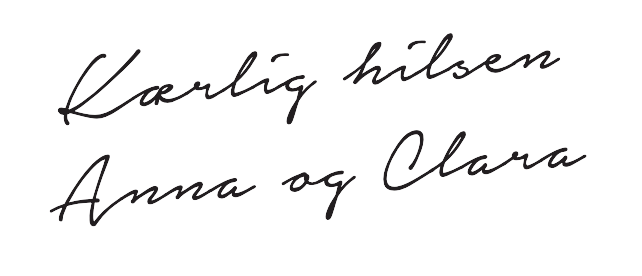 Kærlig hilsen
Anna og Clara